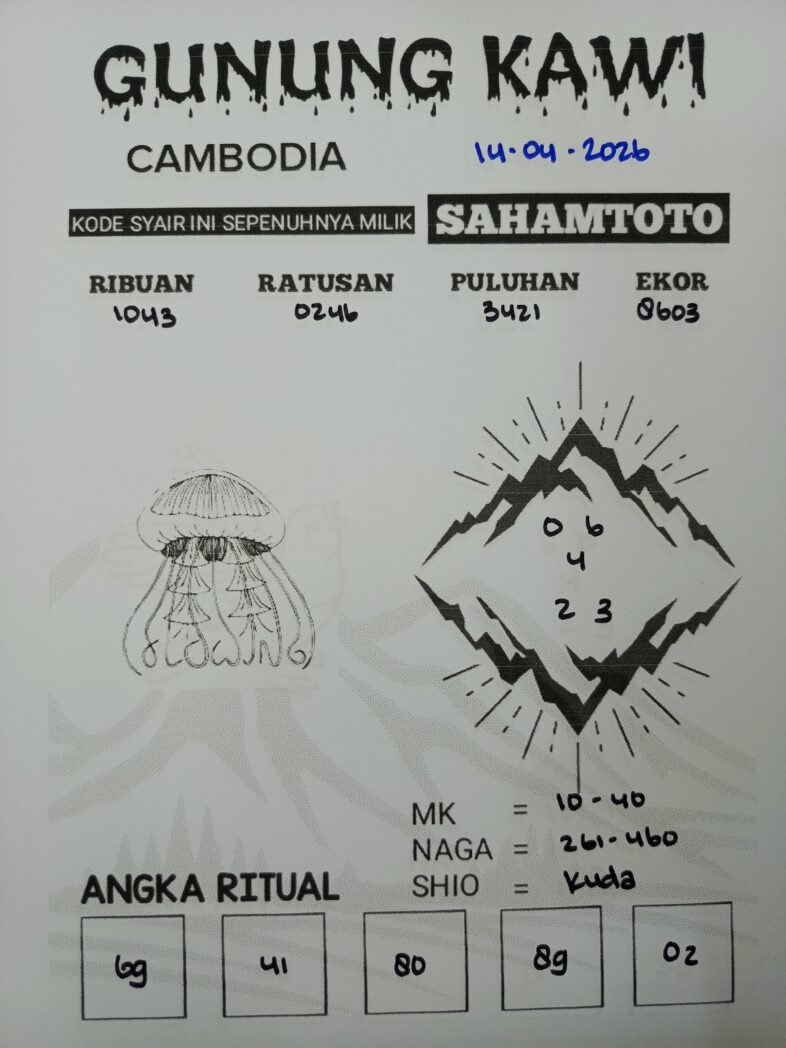 GUNUNG KAWI
CAMBODIA 14-04-2026
KODE SYAIR INI SEPENUHNYA MILIK SAHAMTOTO
RIBUAN RATUSAN PULUHAN EKOR
1043 0246 3421 8603
0 6
4
2 3
GLOWING
MK = 10-40
NAGA = 261-460
SHIO = Kuda
ANGKA RITUAL
69 41 80 89 02